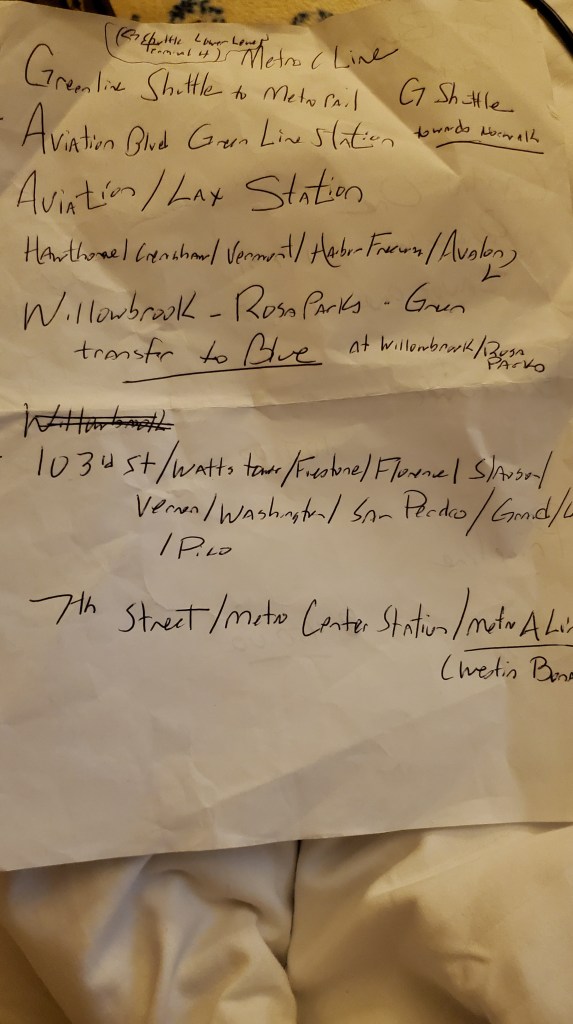 (G Shuttle Lower Level
Terminal 4) Metro C Line
Greenline Shuttle to Metro rail G Shuttle
Aviation Blvd Green Line Station towards Norwalk
Aviation/Lax Station
Hawthorne/Crenshaw/Vermont/Harbor Freeway/Avalon
Willowbrook - Rosa Parks - Green
transfer to Blue at Willowbrook/Rosa
Parks
Willowbrook
103rd St/Watts tower/Firestone/Florence/Slauson/
Vernon/Washington/San Perdro/Grand/
/Pico
7th Street/Metro Center Station/Metro A Li
(Westin Bona